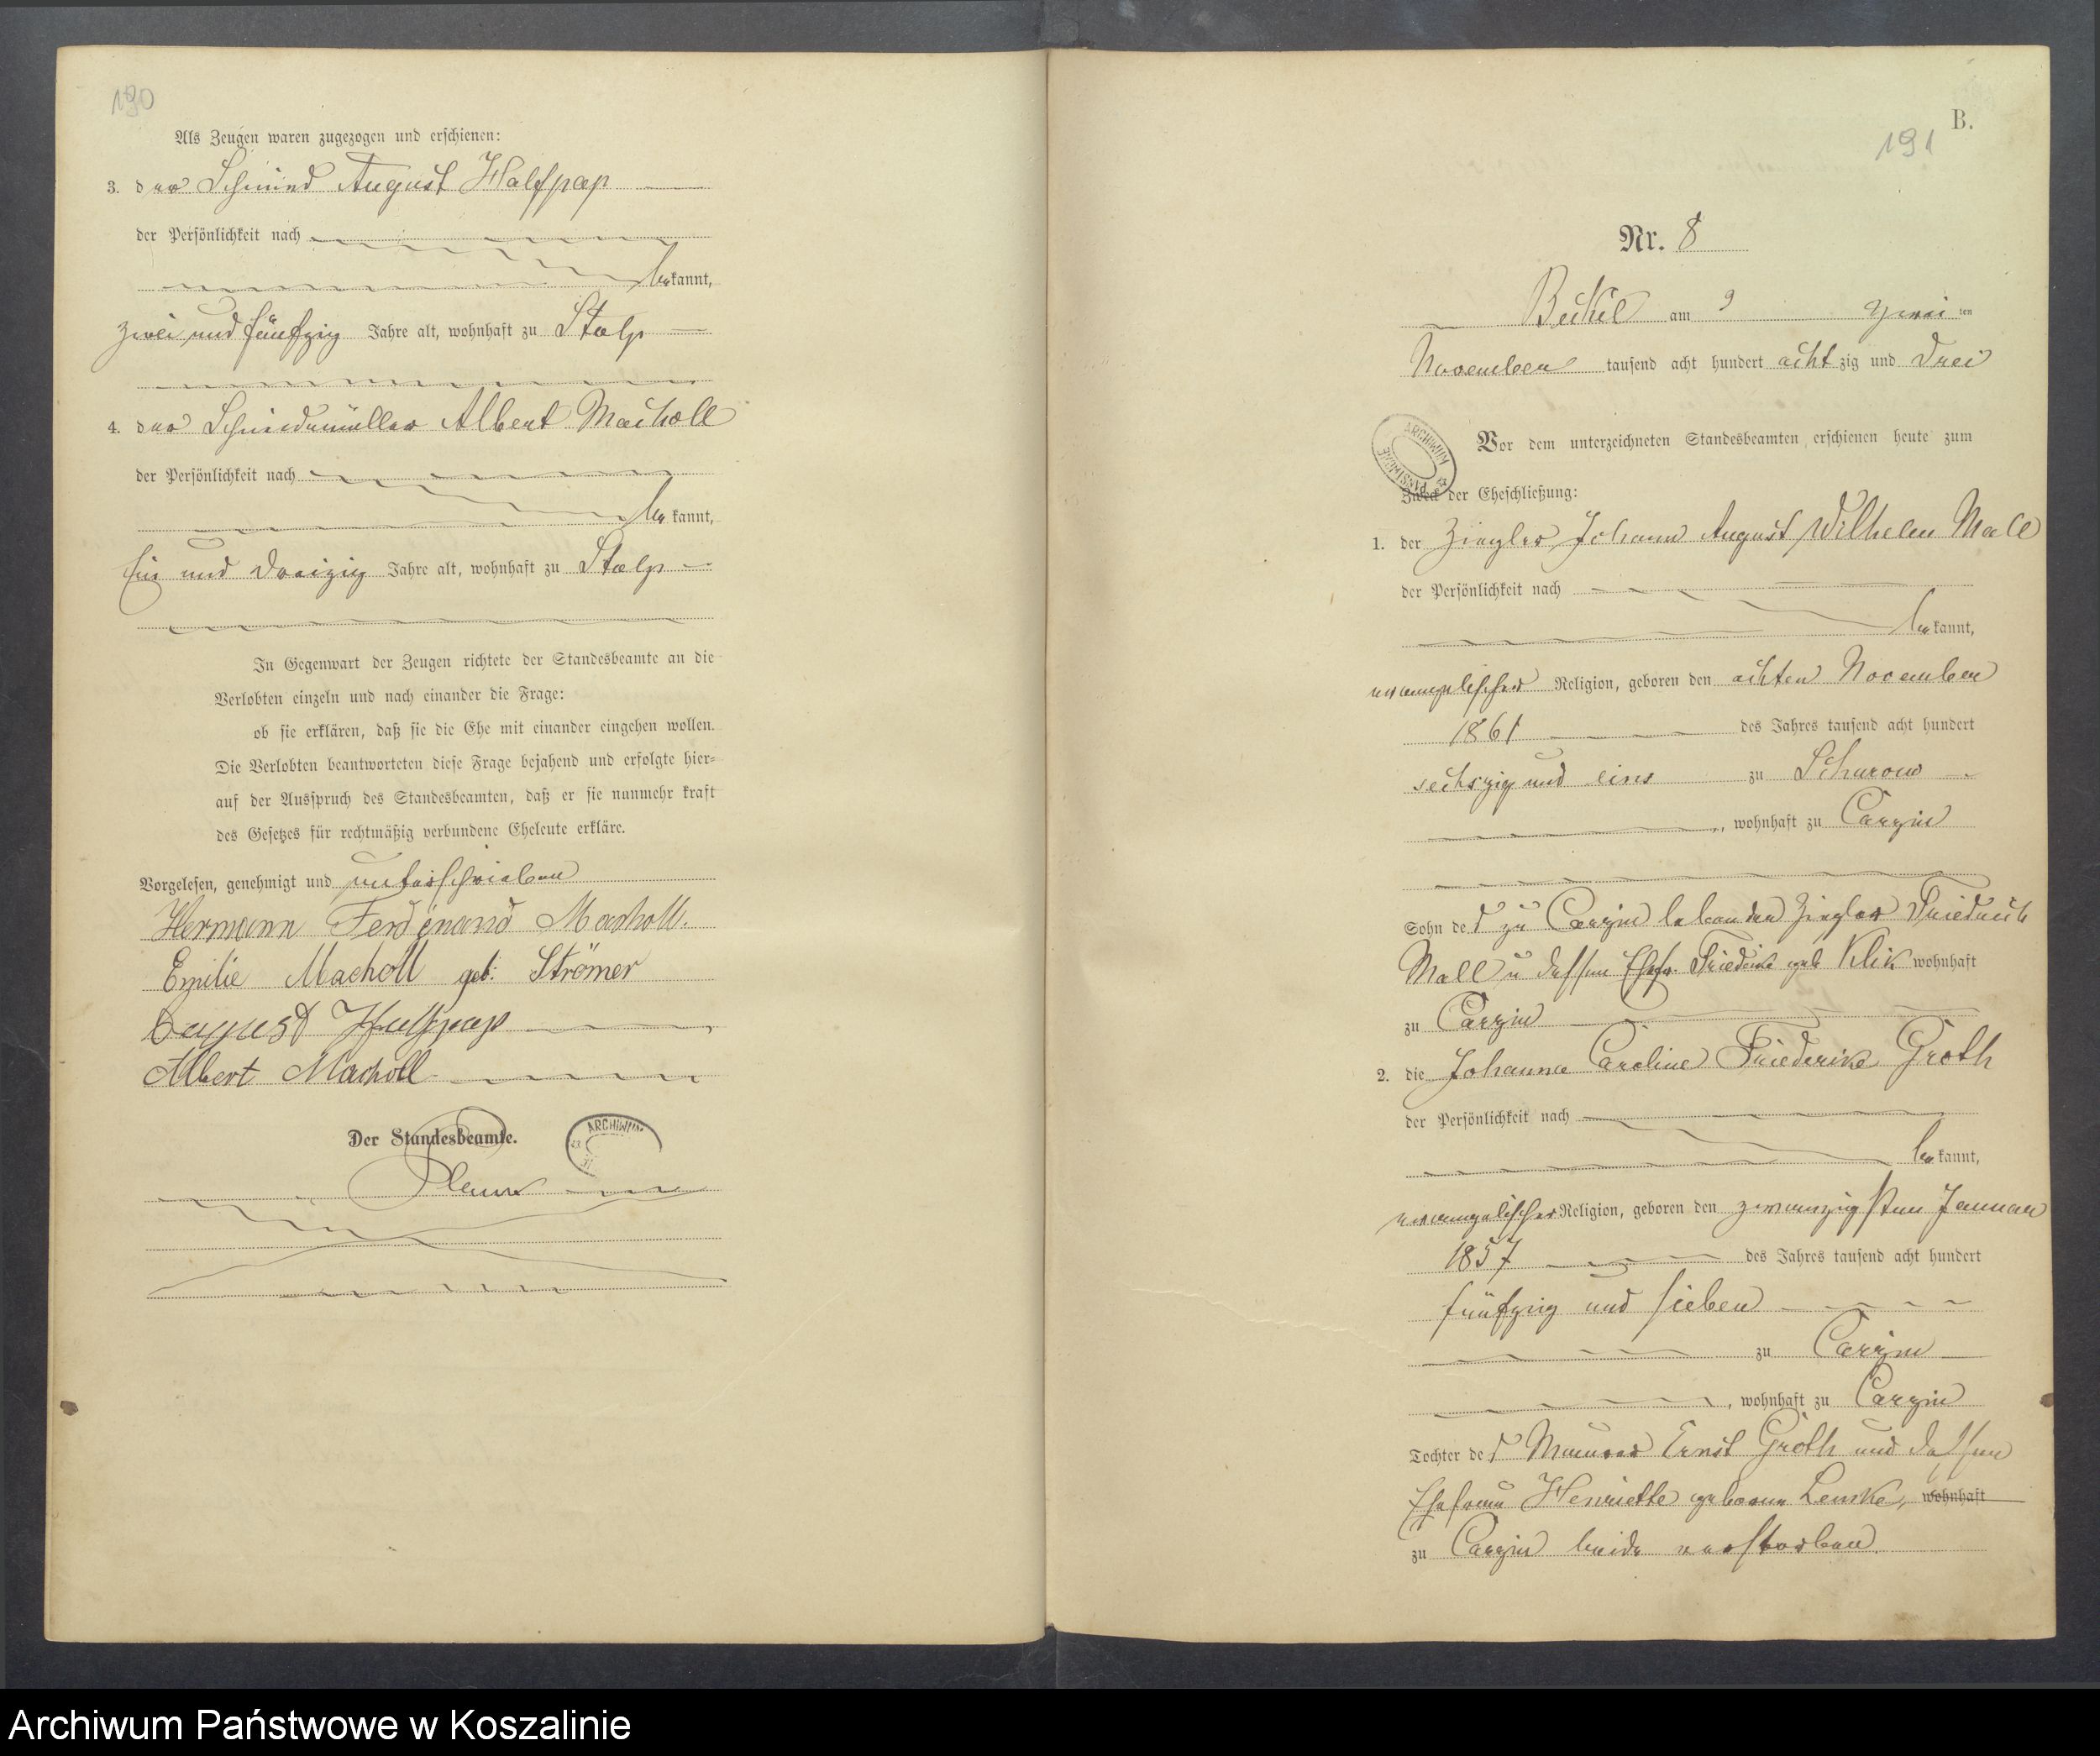 190
Als Zeugen waren zugezogen und erschienen:
3. der Schmied August Halfpap
der Persönlichkeit nach
bekannt,
zwei und fünfzig Jahre alt, wohnhaft zu Stolp
4. der Schneidemüller Albert Macholl
der Persönlichkeit nach
bekannt,
ein und dreizig Jahre alt, wohnhaft zu Stolp
In Gegenwart der Zeugen richtete der Standesbeamte an die
Verlobten einzeln und nach einander die Frage:
ob sie erklären, daß sie die Ehe mit einander eingehen wollen.
Die Verlobten beantworteten diese Frage bejahend und erfolgte hier-
auf der Ausspruch des Standesbeamten, daß er sie nunmehr kraft
des Gesetzes für rechtmäßig verbundene Eheleute erkläre.
Vorgelesen, genehmigt und unterschrieben
Hermann Ferdinand Macholl.
Emilie Macholl geb: Strömer
August Halfpap
Albert Macholl
Der Standesbeamte.
ARCHIWUM
B.
191
Nr. 8
Beckel am zwei ten
November tausend acht hundert acht zig und drei
Vor dem unterzeichneten Standesbeamten erschienen heute zum
Zweck der Eheschließung:
ARCHIWUM PAŃSTWOWE
1. der Ziegler Johann August Wilhelm Mall
der Persönlichkeit nach
bekannt,
evangelischer Religion, geboren den achten November
1861 des Jahres tausend acht hundert
sechszig und eins zu Schurow
, wohnhaft zu Carzin
Sohn des zu Carzin lebenden Ziegler Friedrich
Mall u dessen Ehefr. Friederike geb Klik wohnhaft
zu Carzin
2. die Johanne Caroline Friederike Groth
der Persönlichkeit nach
bekannt,
evangelischer Religion, geboren den zwanzigsten Januar
1857 des Jahres tausend acht hundert
fünfzig und sieben
zu Carzin
, wohnhaft zu Carzin
Tochter des Maurer Ernst Groth und dessen
Ehefrau Henriette geborene Lemke, wohnhaft
zu Carzin beide verstorben.
Archiwum Państwowe w Koszalinie